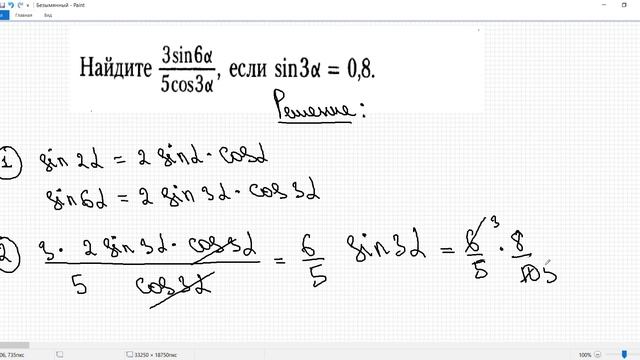 Безымянный - Paint
Главная Вид
Найдите 3sin6α/5cos3α, если sin3α = 0,8.
Решение:
1 sin 2α = 2 sinα · cosα
sin6α = 2 sin 3α · cos 3α
2 3 · 2 sin 3α · cos 3α / 5 cos 3α = 6/5 sin 3α = 6 3/5 · 8/10 5
06, 735пкс 33250 × 18750пкс 100%